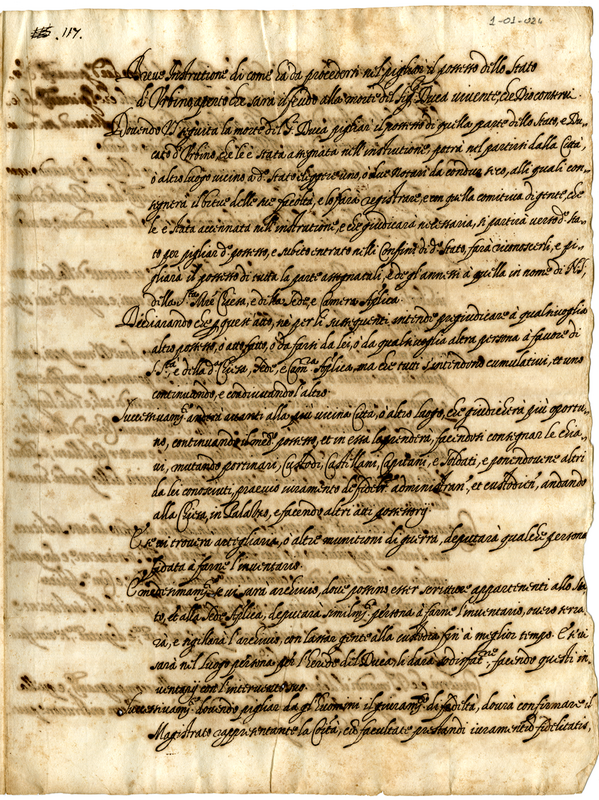 1-01-024
115. 117.
Breve Instrutione di come hà da procedersi nel pigliar il possesso dello Stato
d'Urbino aperto che sarà il feudo alla morte del Sigr Duca vivente, che Dio conservi.
Dovendo V.S. seguita la morte del S. Duca pigliar il possesso di quella parte dello Stato, e Du-
cato d'Urbino, che le è stata assegnata nell'instrutione, potrà nel partirsi dalla Città,
ò altro luogo vicino à do Stato eleggere uno, ò due Notari da condur seco, alli quali con-
segnerà il breve delle sue facoltà, e lo farà registrare, e con quella comitiva di gente, che
le è stata accennata nell'instrutione, e che giudicarà necessaria, si partirà verso do sta-
to per pigliar do possesso, e subito entrato nelli Confini di do Stato, farà riconoscerli, e pi-
gliarà il possesso di tutta la parte assegnatali, e de gl'annessi à quella in nome di N.S.,
della Sta Mre Chiesa, e di sua Sede, e Camera Aplica.
Dechiarando che per quest'atto, nè per li susseguenti intende pregiudicare à qualsivoglia
altro possesso, ò atto fatto, ò da farsi da lei, ò da qualsivoglia altra persona à favore di
S. Stà e della da Chiesa, Sede, e Camra Aplica, ma che tutti s'intendono cumulativi, et uno
continuando, e coadiuvando l'altro.
Successivamte andarà avanti alla più vicina Città, ò altro luogo, che giudicherà più oportu-
no, continuando il medo possesso, et in essa la prenderà, facendosi consegnar le chia-
vi, mutando portinari, Custodi, Castellani, Capitani, e Soldati, e ponendovene altri
da lei conosciuti, praevio iuramento de fideliter administran', et custodien', andando
alla Chiesa, in Palazzo, e facendo altri atti possessorij.
E se vi troverà artegliaria, ò altre munitioni di guerra, deputarà qualche persona
fidata à farne l'inventario.
E medesimamte se vi sarà archivio, dove possino esser scritture appartenenti allo Sta-
to, et alla Sede Aplica, deputarà similmte persona à farne l'inventario, overo serra-
rà, e sigillarà l'archivio, con lassar gente alla custodia fin' à meglior tempo. E se vi
sarà nel luogo persona per l'herede del Duca, li darà sodisfatne, facendo questi in-
ventarij con l'intervento suo.
Successivamte dovendo pigliar da gl'huomini il giuramto di fedeltà, dovrà confirmare il
Magistrato rappresentante la Coità, cum facultate prestandi iuramentum fidelitatis,